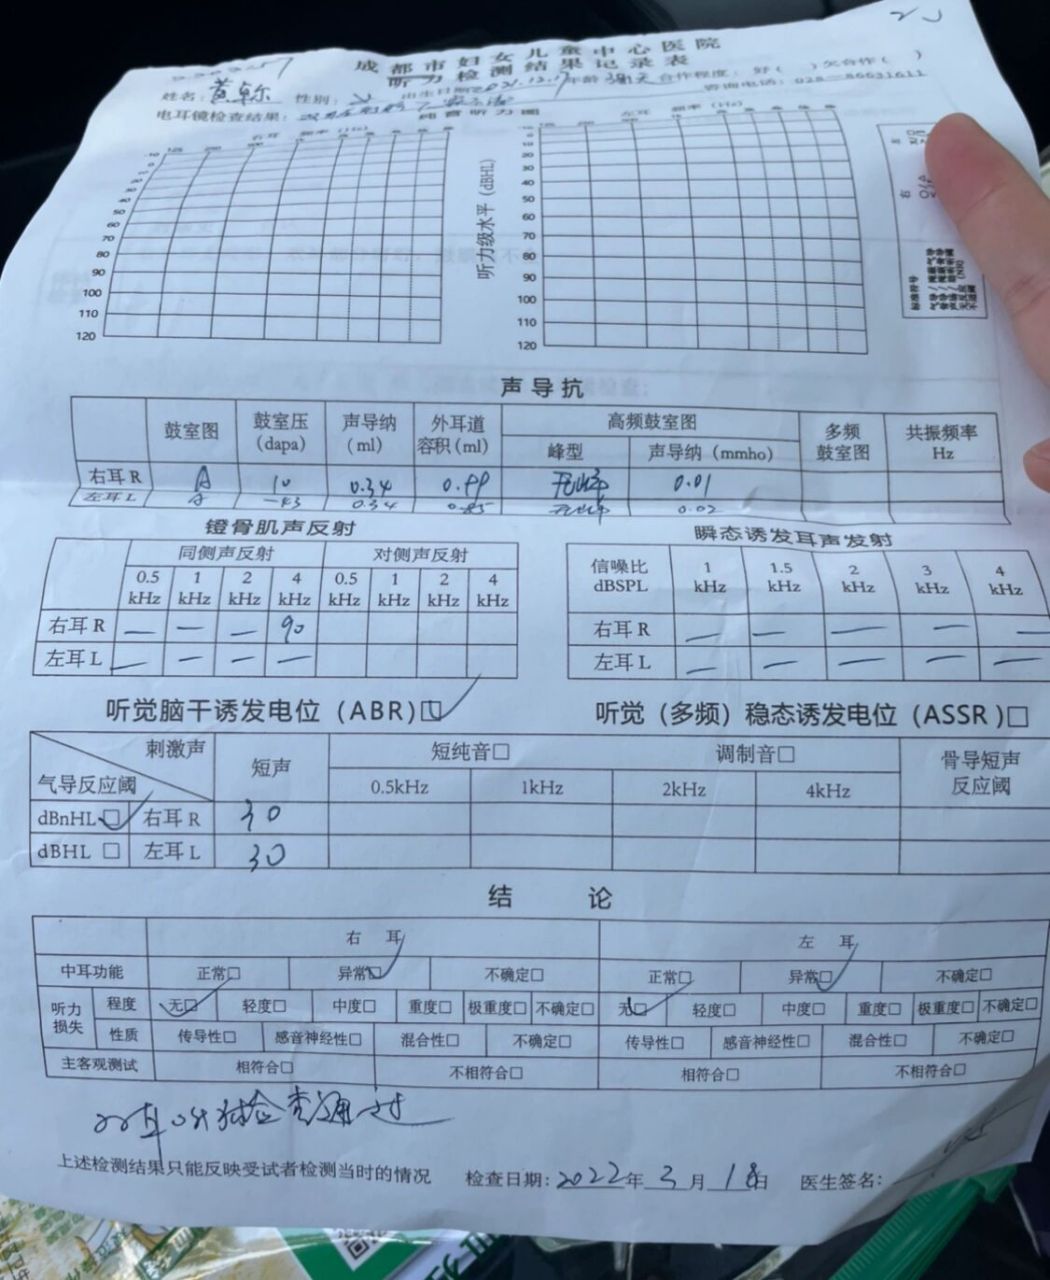 成都市妇女儿童中心医院
听力检测结果记录表
姓名: 性别: 女 出生日期 2021.12.17 年龄 合作程度: 好( ) 欠合作( )
电耳镜检查结果: 咨询电话: 028-86631611
纯音听力图
右耳 频率 (Hz) 左耳 频率 (Hz)
125 250 500
-10
0
10
20
30
40
50
60
70
80
90
100
110
120
听力级水平 (dBHL)
-10
0
10
20
30
40
50
60
70
80
90
100
110
120
声导抗
鼓室图 鼓室压 (dapa) 声导纳 (ml) 外耳道容积 (ml) 高频鼓室图 多频鼓室图 共振频率 Hz
峰型 声导纳 (mmho)
右耳 R A 10 0.34 0.99 无峰 0.01
左耳 L A -43 0.34 0.85 无峰 0.02
镫骨肌声反射 瞬态诱发耳声发射
同侧声反射 对侧声反射
0.5 kHz 1 kHz 2 kHz 4 kHz 0.5 kHz 1 kHz 2 kHz 4 kHz
信噪比 dBSPL 1 kHz 1.5 kHz 2 kHz 3 kHz 4 kHz
右耳 R — — — 90
左耳 L — — — —
右耳 R — — — — —
左耳 L — — — — —
听觉脑干诱发电位(ABR)☑ 听觉(多频)稳态诱发电位(ASSR)□
刺激声 短声 短纯音□ 调制音□ 骨导短声反应阈
气导反应阈 0.5kHz 1kHz 2kHz 4kHz
dBnHL☑ 右耳 R 30
dBHL □ 左耳 L 30
结 论
右 耳 左 耳
中耳功能 正常□ 异常☑ 不确定□ 正常□ 异常☑ 不确定□
听力损失 程度 无☑ 轻度□ 中度□ 重度□ 极重度□ 不确定□ 无☑ 轻度□ 中度□ 重度□ 极重度□ 不确定□
性质 传导性□ 感音神经性□ 混合性□ 不确定□ 传导性□ 感音神经性□ 混合性□ 不确定□
主客观测试 相符合□ 不相符合□ 相符合□ 不相符合□
双耳听力检查通过
上述检测结果只能反映受试者检测当时的情况 检查日期: 2022年 3月 18日 医生签名: